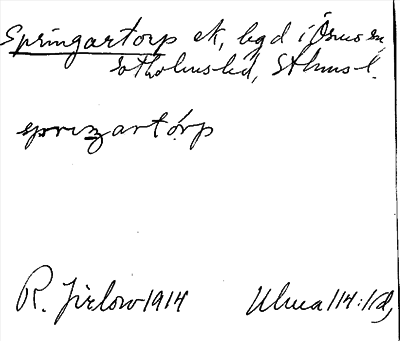 Springartorp ek, bgd i Ösmo sn
Sotholms hd, Sthms l.
sprizartórp
R. Jirlow 1914 Ulma 114:1 d,